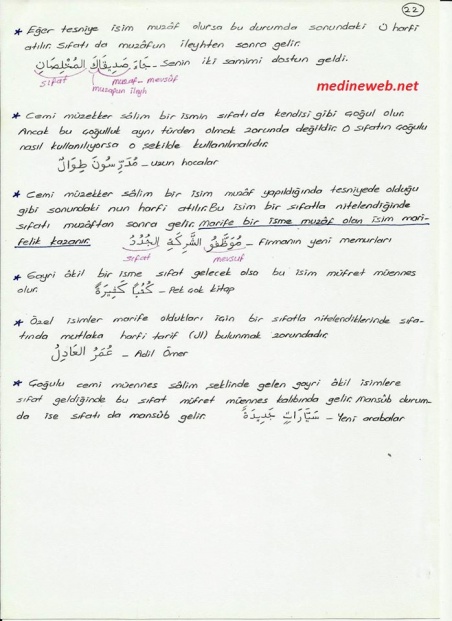 22
* Eğer tesniye isim muzâf olursa bu durumda sonundaki ن harfi
atılır. Sıfatı da muzâfun ileyhten sonra gelir.
جَاءَ صَدِيقَاكَ المُخْلِصَانِ - Senin iki samimi dostun geldi.
sıfat muzaf-mevsûf
muzafun ileyh
medineweb.net
* Cemi müzekker sâlim bir ismin sıfatı da kendisi gibi çoğul olur.
Ancak bu çoğulluk aynı türden olmak zorunda değildir. O sıfatın çoğulu
nasıl kullanılıyorsa o şekilde kullanılmalıdır.
مُدَرِّسُونَ طِوَالٌ - uzun hocalar
* Cemi müzekker sâlim bir isim muzâf yapıldığında tesniyede olduğu
gibi sonundaki nun harfi atılır. Bu isim bir sıfatla nitelendiğinde
sıfatı muzâftan sonra gelir. Marife bir isme muzâf olan isim mari-
felik kazanır. مُوَظَّفُو الشَّرِكَةِ الجُدُدُ - Firmanın yeni memurları
sıfat mevsuf
* Gayri âkil bir isme sıfat gelecek olsa bu isim müfret müennes
olur. كُتُبًا كَثِيرَةً - Pek çok kitap
* Özel isimler marife oldukları için bir sıfatla nitelendiklerinde sıfa-
tında mutlaka harfi tarif (ال) bulunmak zorundadır.
عُمَرُ العَادِلُ - Adil Ömer
* Çoğulu cemi müennes sâlim şeklinde gelen gayri âkil isimlere
sıfat geldiğinde bu sıfat müfret müennes kalıbında gelir. Mansûb durum-
da ise sıfatı da mansûb gelir. سَيَّارَاتٍ جَدِيدَةً - Yeni arabalar